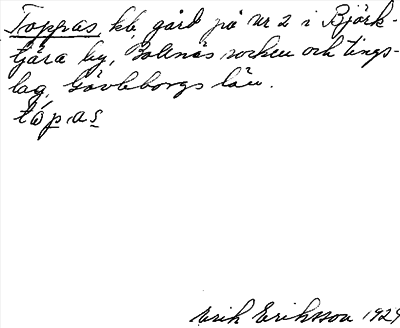 Toppas kb, gård på nr 2 i Björk-
tjära by, Bollnäs socken och tings-
lag, Gävleborgs län.
tòpas
Erik Eriksson 1929